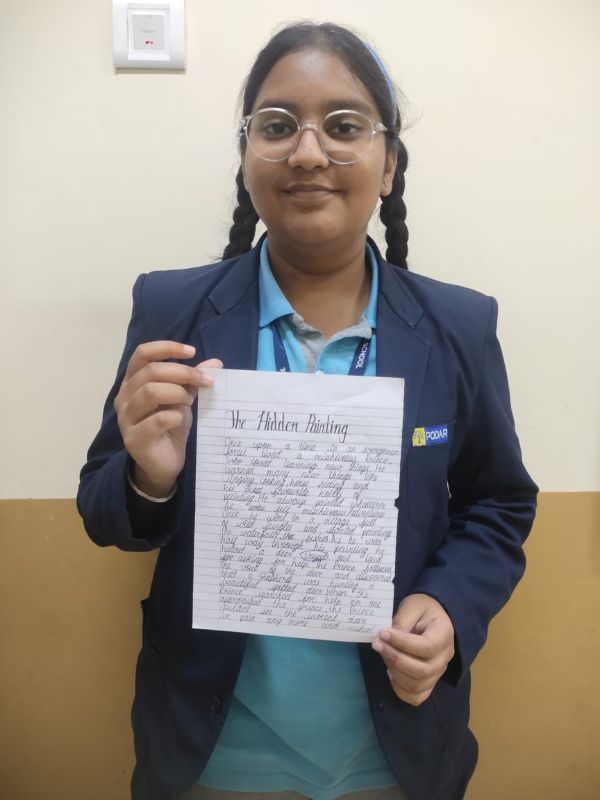 SCHOOL
PODAR
The Hidden Painting
Once upon a time in an evergreen
forest lived a mischievous prince
who loved learning new things. He
learned many new things like
singing, cooking, horse riding and
his most favourite hobby of
painting. He always painted whenever
he was
Once he went to a village full
of wild jungles and started painting
the waterfall, the bushes. As he was
half way through his painting he
heard a deer out loud
for asking for help. The Prince followed
the voice of the deer and discovered
that a shepherd was hunting a
spotted deer. When the
prince searched for help no one
approached the prince. The Prince
couldnt see the inocent deer
in pain any more and rushed